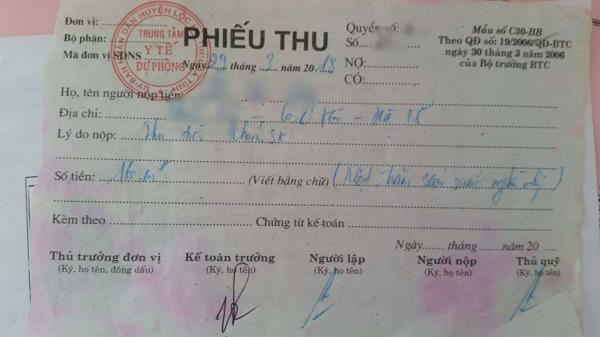 Đơn vị:
Bộ phận:
Mã đơn vị SDNS
TRUNG TÂM
Y TẾ
DỰ PHÒNG
PHIẾU THU
Ngày 29 tháng 3 năm 2018
Quyển số:
Số
NỢ:
CÓ:
Mẫu số C30-BB
Theo QĐ số: 19/2006/QĐ-BTC
ngày 30 tháng 3 năm 2006
của Bộ trưởng BTC
Họ, tên người nộp tiền:
Địa chỉ:
Lý do nộp: Thu tiền khám SK
Số tiền: (Viết bằng chữ) (Một trăm sáu mươi nghìn
Kèm theo Chứng từ kế toán
Ngày tháng năm 20
Thủ trưởng đơn vị Kế toán trưởng Người lập Người nộp Thủ quỹ
(Ký, họ tên, đóng dấu) (Ký, họ tên) (Ký, họ tên) (Ký, họ tên) (Ký, họ tên)